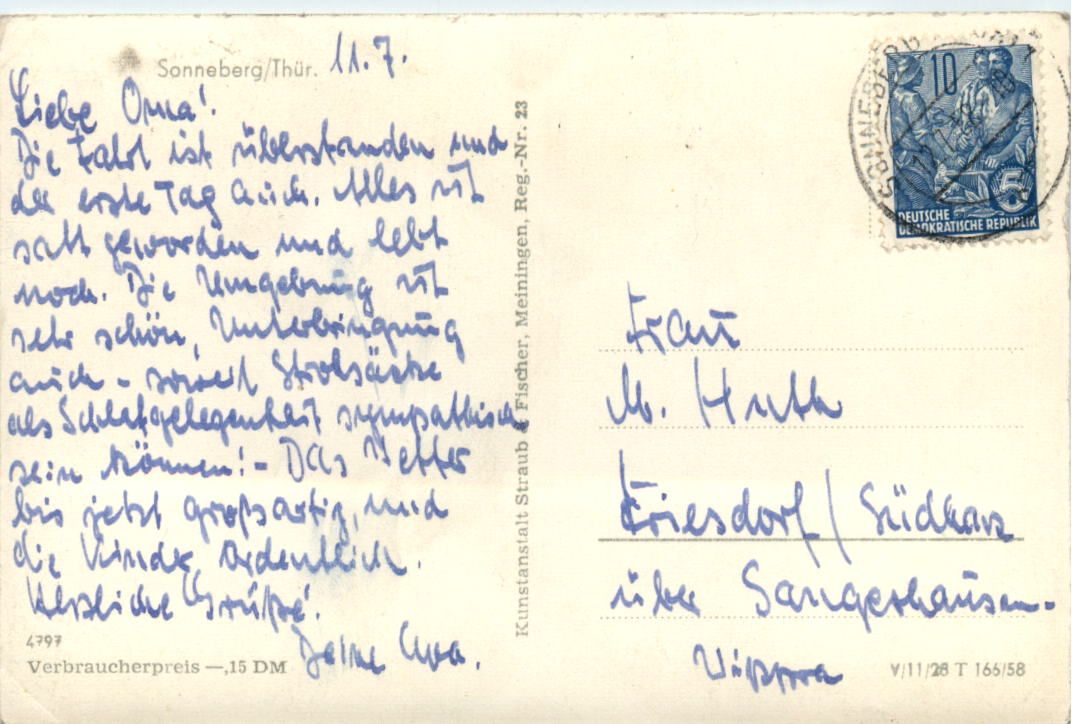 Sonneberg/Thür. 11.7.
Liebe Oma!
Die Fahrt ist überstanden und
der erste Tag auch. Alles ist
satt geworden und lebt
noch. Die Umgebung ist
sehr schön, Unterbringung
auch - soweit Strohsäcke
als Schlafgelegenheit sympathisch
sein können! - Das Wetter
bis jetzt großartig, und
die Kinder ordentlich.
Herzliche Grüße!
Deine
4797
Verbraucherpreis —,15 DM
Kunstanstalt Straub & Fischer, Meiningen, Reg.-Nr. 23
SONNEBERG
10
5
DEUTSCHE
DEMOKRATISCHE REPUBLIK
Frau
M. Huth
Friesdorf / Südharz
über Sangerhausen-
Wippra
V/11/28 T 166/58